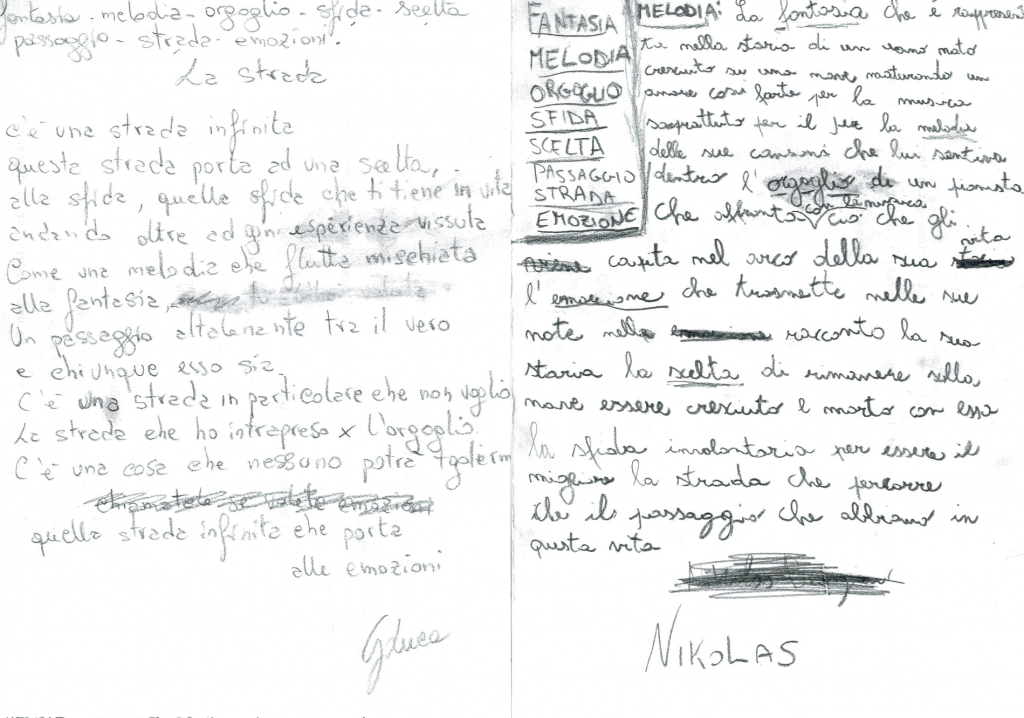 fantasia - melodia - orgoglio - sfida - scelta
passaggio - strada - emozioni.
La strada
c'è una strada infinita
questa strada porta ad una scelta,
alla sfida, quella sfida che ti tiene in vita
andando oltre ad ogni esperienza vissuta
Come una melodia che flutta mischiata
alla fantasia,
Un passaggio altalenante tra il vero
e chiunque esso sia.
C'è una strada in particolare che non voglio
La strada che ho intrapreso x l'orgoglio.
C'è una cosa che nessuno potrà
quella strada infinita che porta
alle emozioni
Gluca
FANTASIA
MELODIA
ORGOGLIO
SFIDA
SCELTA
PASSAGGIO
STRADA
EMOZIONE
MELODIA: La fantasia che è rappresen
ta nella storia di un uomo nato
cresciuto su una nave maturando un
amore così forte per la musica
soprattutto per il jez la melodia
delle sue canzoni che lui sentiva
dentro l'orgoglio di un pianista
che affronta con la musica ciò che gli
capita nel arco della sua vita
l'emozione che trasmette nelle sue
note nella racconto la sua
storia la scelta di rimanere sulla
nave essere cresciuto e morto con essa
la sfida involontaria per essere il
migliore la strada che percorre
che il passaggio che abbiamo in
questa vita
NIKOLAS